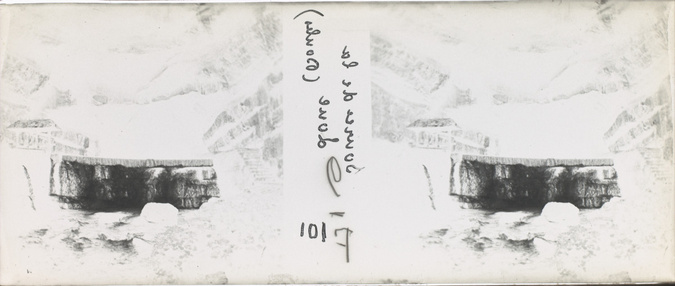 Source de la
Loue (Doubs)
101